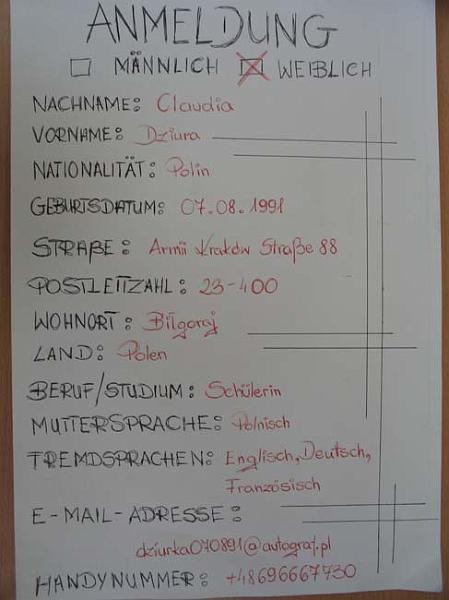 ANMELDUNG
MÄNNLICH WEIBLICH
NACHNAME: Claudia
VORNAME: Dziura
NATIONALITÄT: Polin
GEBURTSDATUM: 07.08.1991
STRAßE: Armii Kraków Straße 88
POSTLEITZAHL: 23-400
WOHNORT: Biłgoraj
LAND: Polen
BERUF/STUDIUM: Schülerin
MUTTERSPRACHE: Polnisch
TREMDSPRACHEN: Englisch, Deutsch,
Französisch
E-MAIL-ADRESSE:
dziurka070891@autograf.pl
HANDYNUMMER: +48696667730